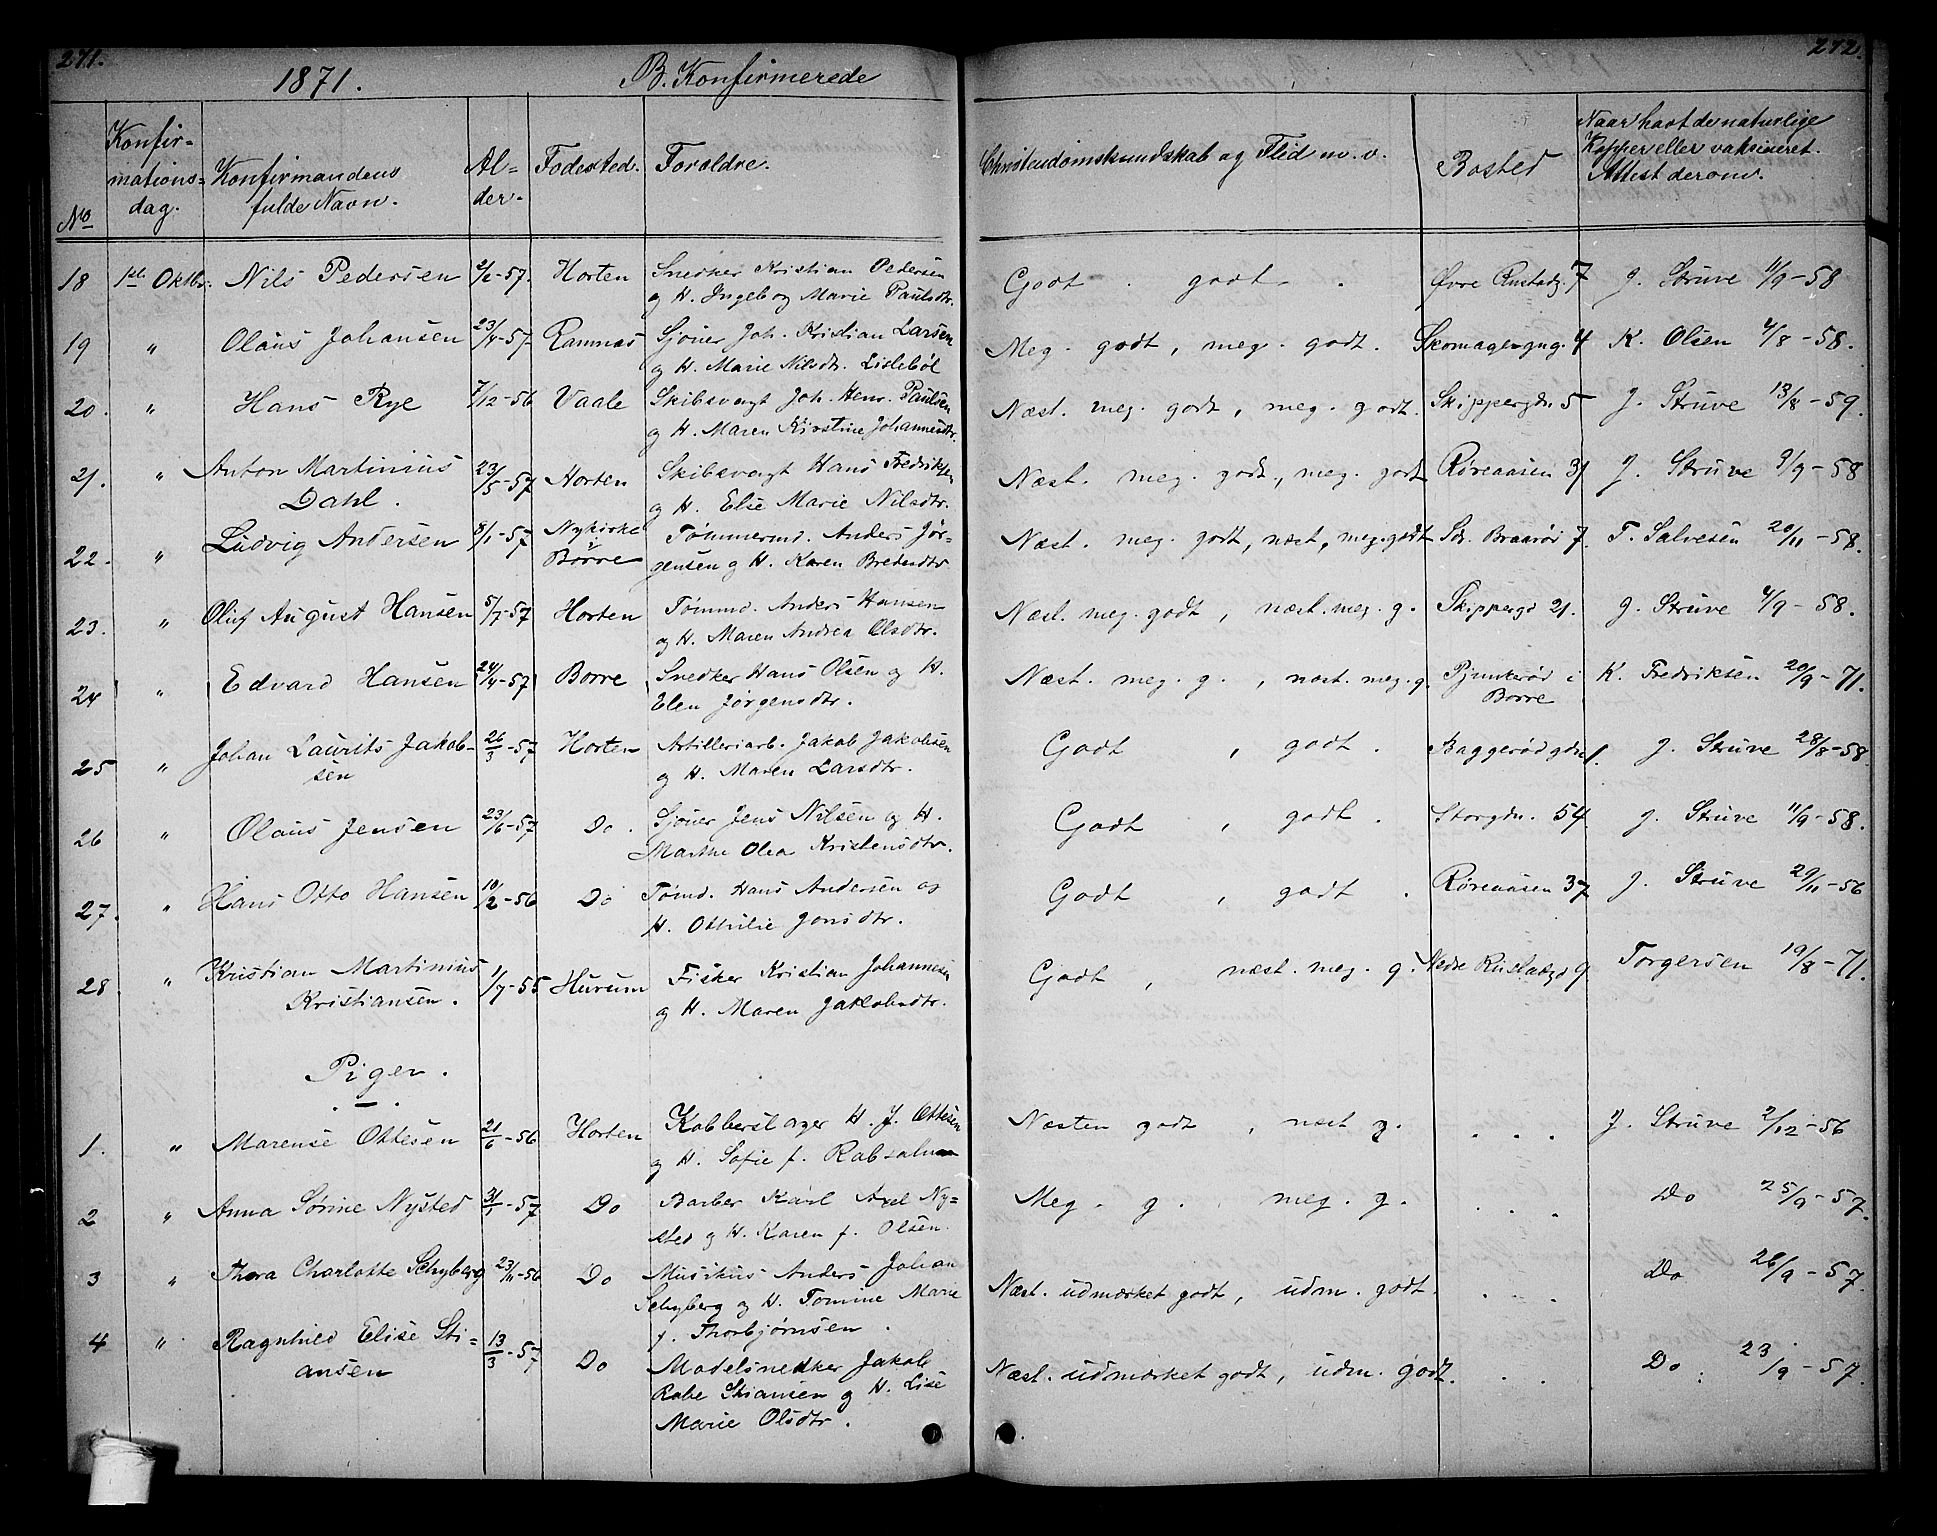 271.
1871.
B. Konfirmerede
272.
No
Konfir-
mations-
dag.
Konfirmandens
fulde Navn.
Al-
der.
Fødested.
Forældre.
Christendomskundskab og Flid m. v.
Bosted
Naar havt de naturlige
Kopper eller vaksineret.
Attest derom.
18 1ste Oktbr. Nils Pedersen -57. Horten Snedker Kristian Pedersen Godt . godt . Øvre Rustadg. 7 J. Struve 11/9-58
og H. Ingeborg Marie Paulsdtr.
19 " Olaus Johansen 23/4-57 Ramnæs Sjøuer Joh. Kristian Larsen Meg. godt, meg. godt. Skomagergng. 4 K. Olsen 4/8-58.
og H. Marie Nilsdtr. Lislebøl
20. " Hans Rye 7/12-56 Vaale Skibsvagt Joh. Henr. Paulsen Næst. meg. godt, meg. godt. Skippergdn. 5 J. Struve 13/8-59.
og H. Maren Kirstine Johannesdtr.
21. " Anton Martinius 23/5-57 Horten Skibsvagt Hans Fredriksen Næst. meg. godt, meg. godt Røreaasen 31 J. Struve 9/9-58
Dahl. og H. Else Marie Nilsdtr.
22. " Ludvig Andersen 8/1-57 Nykirke Tømmermd. Anders Jør- Næst. meg. godt, næst. meg. godt Sdr. Braarød 7. T. Salvesen 20/11-58.
i Børre gensen og H. Karen Bredesdtr
23. " Oluf August Hansen 5/7-57 Horten Tømmd. Anders Hansen Næst. meg. godt, næst. meg. g. Skippergd 21. J. Struve 4/9-58.
og H. Maren Andrea Olsdtr.
24 " Edvard Hansen 24/4-57 Borre Snedker Hans Olsen og H. Næst. meg. g., næst. meg. g. i K. Fredriksen 20/9-71.
Elen Jørgensdtr. Borre
25 " Johan Laurits Jakob- 26/3-57 Horten Artilleriarb. Jakob Jakobsen Godt , godt . Baggerødgdn 1. J. Struve 28/8-58
sen og H. Maren Larsdtr.
26 " Olaus Jensen 23/6-57 Do. Sjøuer Jens Nilsen og H. Godt , godt . Storgdn. 54 J. Struve 11/9-58.
Marthe Olea Kristensdtr.
27. " Hans Otto Hansen 10/2-56 Do Tømd. Hans Andersen og Godt , godt . Røreaasen 37 J. Struve 29/11-56
H. Othilie Jonsdtr.
28. " Kristian Martinius 1/7-55 Hurum Fisker Kristian Johannesen Godt , næst. meg. g. Nedre Rustadgd 9 Torgersen 19/8-71.
Kristiansen. og H. Maren Jakobsdtr.
Piger.
1. " Marense Ottesen 21/6-56 Horten Kobberslager H. J. Ottesen Næsten godt , næst g. . . . J. Struve 2/12-56
og H. Sofie f. Rabsahm
2 " Anna Sørine Nysted 31/1-57 Do Barber Karl Axel Ny- Meg. g. , meg. g. . . . Do 25/9-57.
sted og H. Karen f. Olsen.
3 " Thora Charlotte Schyberg 23/11-56 Do Musikus Anders Johan Næst. udmærket godt, udm. godt. . . . Do 26/9-57.
Schyberg og H. Tomine Marie
f. Thorbjørnsen.
4 " Ragnhild Elise Sti- 13/3-57 Do Modelsnedker Jakob Næst. udmærket godt, udm. godt. . . Do . 23/9-57.
ansen Rabe Stiansen og H. Lise
Marie Olsdtr.